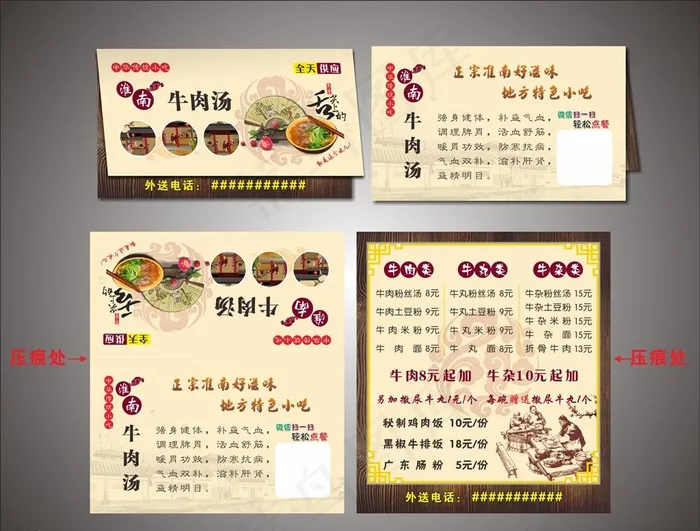 中华传统小吃
全天供应
淮南
牛肉汤
舌尖上的
外送电话：###########
正宗淮南好滋味
地方特色小吃
中华传统小吃
淮南
牛肉汤
强身健体，补益气血，
调理脾胃，活血舒筋，
暖胃功效，防寒抗病，
气血双补，滋补肝肾，
益精明目。
微信扫一扫
轻松点餐
舌尖上的
牛肉汤
淮南
全天供应
中华传统小吃
压痕处
正宗淮南好滋味
地方特色小吃
中华传统小吃
淮南
牛肉汤
强身健体，补益气血，
调理脾胃，活血舒筋，
暖胃功效，防寒抗病，
气血双补，滋补肝肾，
益精明目。
微信扫一扫
轻松点餐
牛肉类 牛丸类 牛杂类
牛肉粉丝汤 8元 牛丸粉丝汤 8元 牛杂粉丝汤 15元
牛肉土豆粉 9元 牛丸土豆粉 9元 牛杂土豆粉 15元
牛肉米粉 9元 牛丸米粉 9元 牛杂米粉 15元
牛肉面 8元 牛丸面 8元 折骨牛肉 13元
牛肉8元起加 牛杂10元起加
另加撒尿牛丸/元/个 每碗赠送撒尿牛丸/个
秘制鸡肉饭 10元/份
黑椒牛排饭 18元/份
广东肠粉 5元/份
外送电话：###########
压痕处